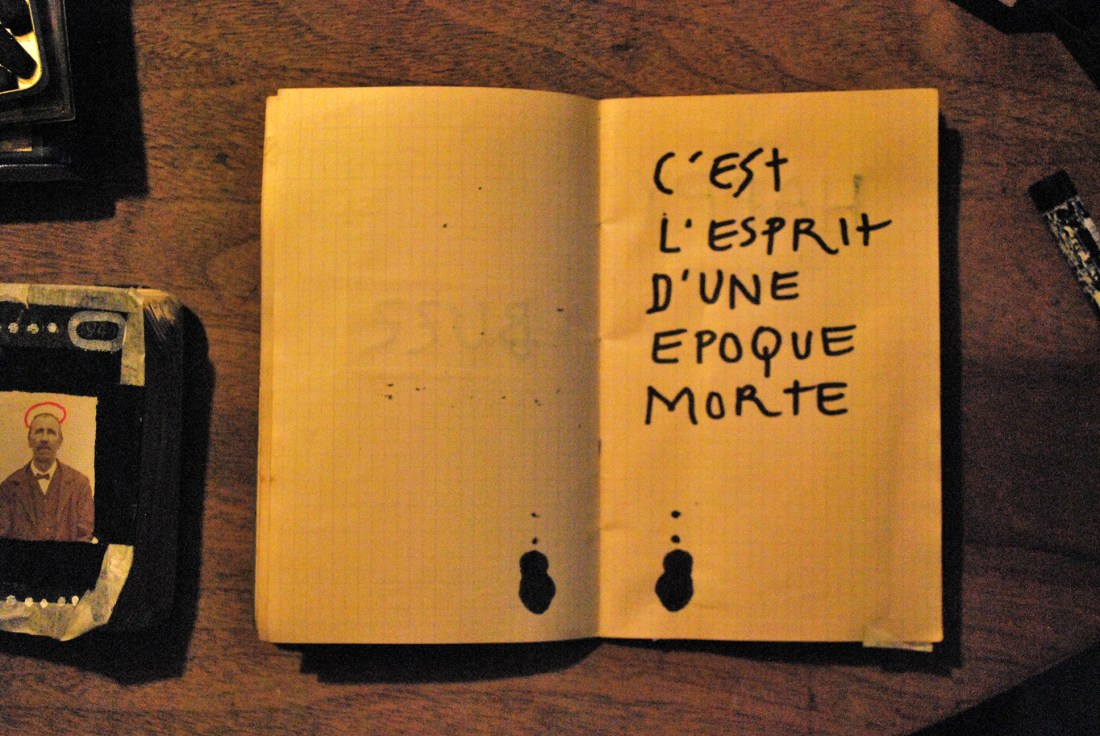 C'EST
L'ESPRIT
D'UNE
EPOQUE
MORTE